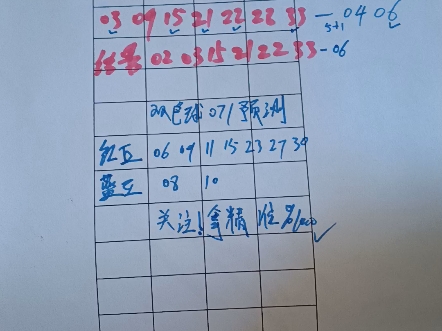 03 09 15 21 22 28 33 — 04 06
5+1
结果 02 03 15 21 22 33 - 06
双色球 071预测
红豆 06 09 11 15 23 27 30
蓝豆 08 10
关注! 拿精 准 %1000